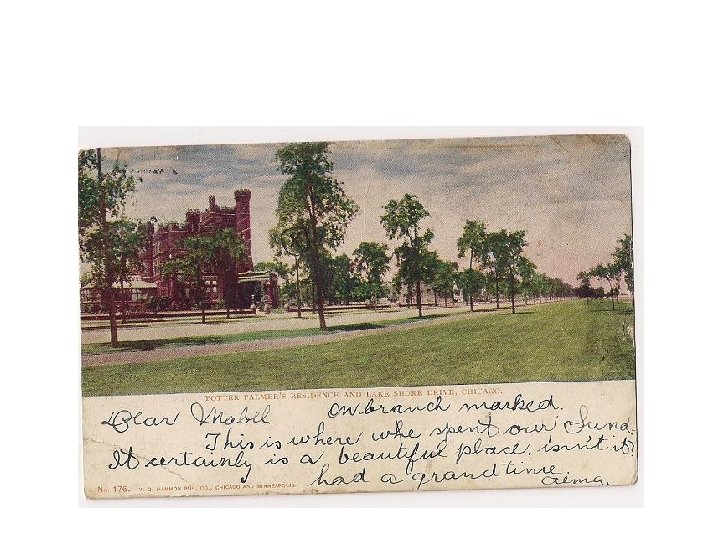 POTTER PALMER'S RESIDENCE AND LAKE SHORE DRIVE, CHICAGO.
Dear Mabel on branch marked.
This is where whe spent our
It certainly is a beautiful place, isn't it,
had a grand time.
Alma.
No. 176. V. O. HAMMON PUB. CO., CHICAGO AND MINNEAPOLIS.